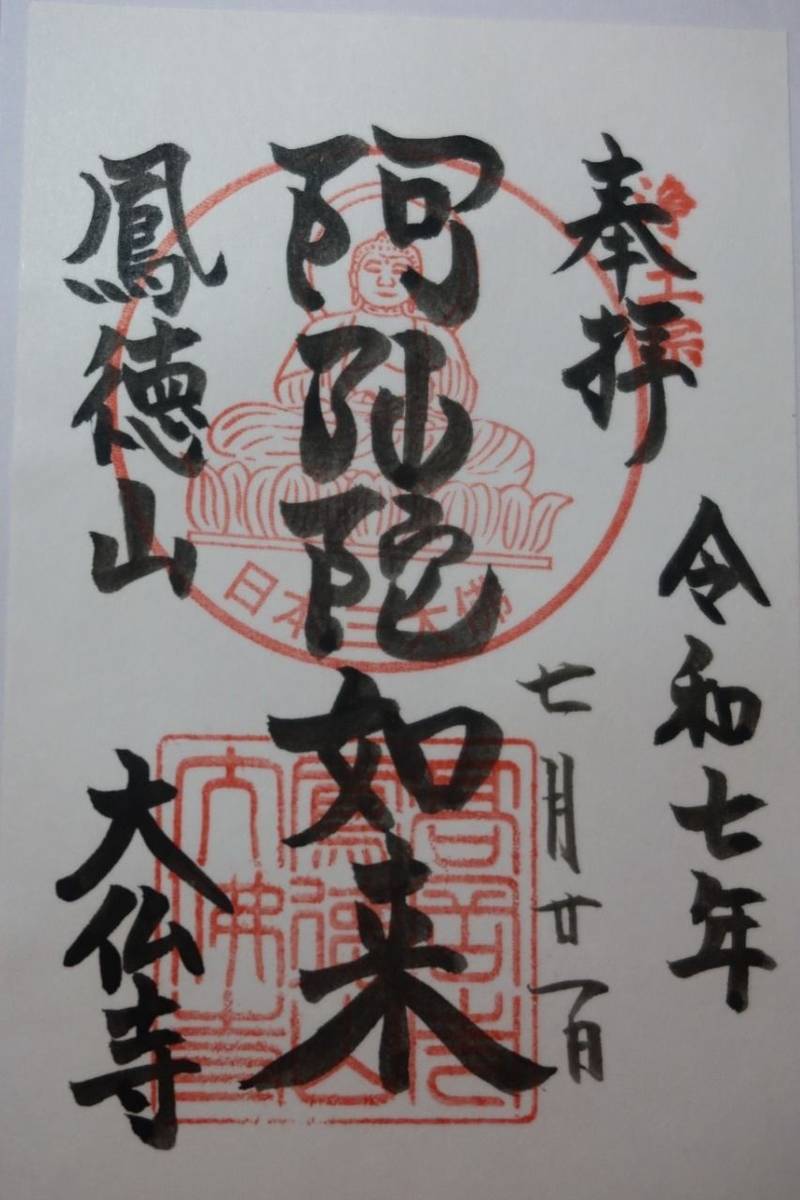 浄土宗
奉拝
令和七年
七月廿一日
阿弥陀如来
日本三大佛
鳳徳山
大仏寺
高岳山
鳳德山
大佛寺